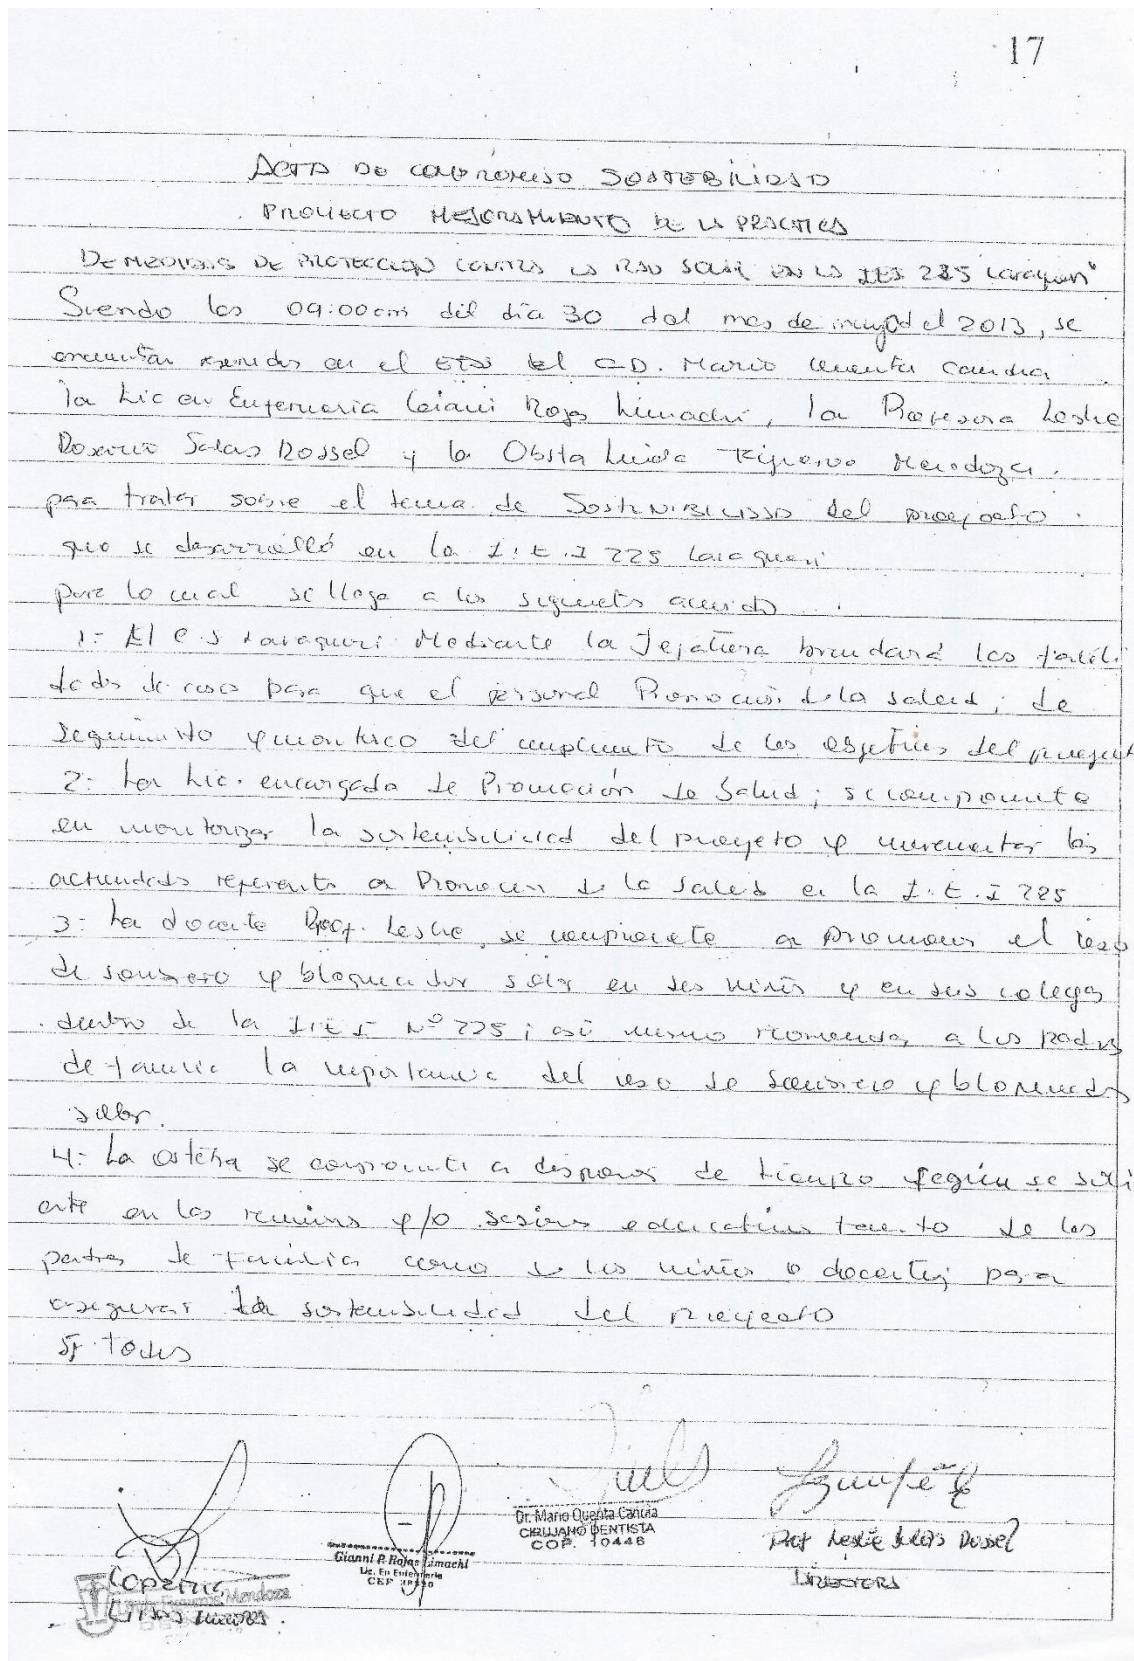 17
ACTA DE COMPROMISO SOSTEBILIDAD
PROYECTO MEJORAMIENTO DE LA PRACTICA
DE MEDIDAS DE PROTECCION CONTRA LA RAD SOLAR EN LA IEI 225 Laraqueri"
Siendo las 09:00am del dia 30 del mes de mayo del 2013, se
encuentan reunidos en el del C.D. Mario
la Lic en Enfermeria Rojas Limachi, la Profesora Leslie
Rosario Salas Rossel y la Obsta Figueroa Mendoza.
para tratar sobre el tema de SOSTENIBILIDAD del proyecto
que se desarrolló en la I.E.I 225 Laraqueri
para lo cual se llega a los siguients
1- El C.S Laraqueri Mediante la Jefatura brindará las facili
dades de para que el personal Promocion de la salud; de
seguimiento y del de los objetivos del
2- La Lic. encargada de Promoción de Salud; se compromete
en monitorizar la sostenibilidad del proyeto y incrementar las
actividades referente a Promocion de la Salud en la I.E.I 225
3- La docente Prof. Leslie, se compromete a promover el uso
de sombrero y bloqueador solar en sus niños y en sus colegas
dentro de la I.E.I Nº 225; asi mismo recomendar a los padres
de familia la importancia del uso de sombrero y bloqueador
solar.
4- La se compromete a disponer de tiempo según se solici
te en las reunions y/o sesions educativas tanto de los
padres de familia como de los niños o docentes para
asegurar la sostenibilidad del proyecto
Dr. Mario Quenta Canura
CIRUJANO DENTISTA
COP. 10446
Gianni P. Rojas Limachi
Lic. En Enfermeria
CEP
Prof Leslie Salas Rossel
DIRECTORA
Mendoza